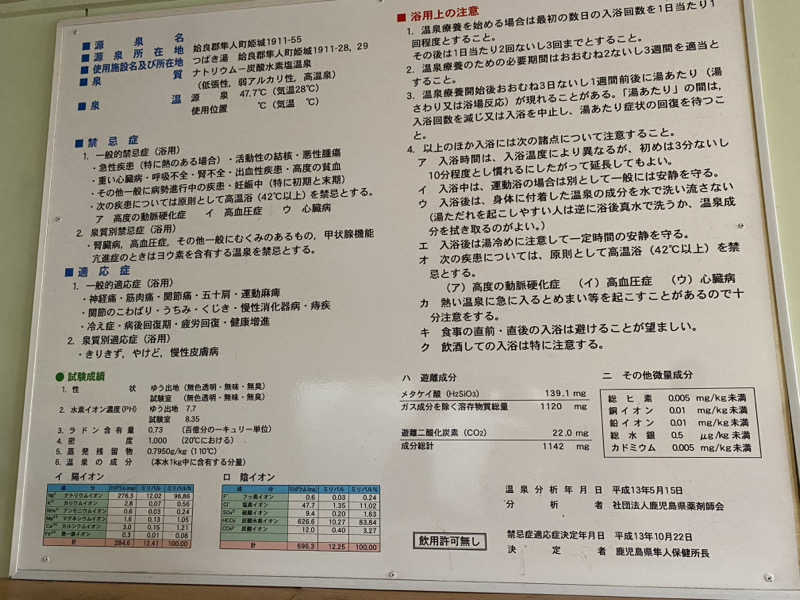 ■源泉名 姶良郡隼人町姫城1911-55
■源泉所在地 姶良郡隼人町姫城1911-28, 29
■使用施設名及び所在地 つばき湯
■泉質 ナトリウム－炭酸水素塩温泉
(低張性, 弱アルカリ性, 高温泉)
■泉温 源泉 47.7℃ (気温28℃)
使用位置 ℃ (気温 ℃)
■禁忌症
1. 一般的禁忌症（浴用）
・急性疾患（特に熱のある場合）・活動性の結核・悪性腫瘍
・重い心臓病・呼吸不全・腎不全・出血性疾患・高度の貧血
・その他一般に病勢進行中の疾患・妊娠中（特に初期と末期）
・次の疾患については原則として高温浴（42℃以上）を禁忌とする。
ア 高度の動脈硬化症 イ 高血圧症 ウ 心臓病
2. 泉質別禁忌症（浴用）
・腎臓病, 高血圧症, その他一般にむくみのあるもの, 甲状腺機能
亢進症のときはヨウ素を含有する温泉を禁忌とする。
■適応症
1. 一般的適応症（浴用）
・神経痛・筋肉痛・関節痛・五十肩・運動麻痺
・関節のこわばり・うちみ・くじき・慢性消化器病・痔疾
・冷え症・病後回復期・疲労回復・健康増進
2. 泉質別適応症（浴用）
・きりきず, やけど, 慢性皮膚病
●試験成績
1. 性状 ゆう出地（無色透明・無味・無臭）
試験室（無色透明・無味・無臭）
2. 水素イオン濃度(PH) ゆう出地 7.7
試験室 8.35
3. ラドン含有量 0.73 （百億分の一キュリー単位）
4. 密度 1.000 （20℃における）
5. 蒸発残留物 0.7950g/kg (110℃)
6. 温泉の成分 （本水1kg中に含有する分量）
イ 陽イオン
成分 ミリグラム(mg) ミリバル ミリバル%
Na⁺ ナトリウムイオン 276.3 12.02 96.86
K⁺ カリウムイオン 2.8 0.07 0.56
NH₄⁺ アンモニウムイオン 0.6 0.03 0.24
Mg²⁺ マグネシウムイオン 1.6 0.13 1.05
Ca²⁺ カルシウムイオン 3.0 0.15 1.21
Fe²⁺ 第一鉄イオン 0.3 0.01 0.08
計 284.6 12.41 100.00
ロ 陰イオン
成分 ミリグラム(mg) ミリバル ミリバル%
F⁻ フッ素イオン 0.6 0.03 0.24
Cl⁻ 塩素イオン 47.7 1.35 11.02
SO₄²⁻ 硫酸イオン 9.4 0.20 1.63
HCO₃⁻ 炭酸水素イオン 626.6 10.27 83.84
CO₃²⁻ 炭酸イオン 12.0 0.40 3.27
計 696.3 12.25 100.00
■浴用上の注意
1. 温泉療養を始める場合は最初の数日の入浴回数を1日当たり1
回程度とすること。
その後は1日当たり2回ないし3回までとすること。
2. 温泉療養のための必要期間はおおむね2ないし3週間を適当と
すること。
3. 温泉療養開始後おおむね3日ないし1週間前後に湯あたり（湯
さわり又は浴場反応）が現れることがある。「湯あたり」の間は,
入浴回数を減じ又は入浴を中止し, 湯あたり症状の回復を待つこ
と。
4. 以上のほか入浴には次の諸点について注意すること。
ア 入浴時間は、入浴温度により異なるが, 初めは3分ないし
10分程度とし慣れるにしたがって延長してもよい。
イ 入浴中は, 運動浴の場合は別として一般には安静を守る。
ウ 入浴後は, 身体に付着した温泉の成分を水で洗い流さない
(湯ただれを起こしやすい人は逆に浴後真水で洗うか, 温泉成
分を拭き取るのがよい。)
エ 入浴後は湯冷めに注意して一定時間の安静を守る。
オ 次の疾患については, 原則として高温浴（42℃以上）を禁
忌とする。
(ア) 高度の動脈硬化症 (イ) 高血圧症 (ウ) 心臓病
カ 熱い温泉に急に入るとめまい等を起こすことがあるので十
分注意をする。
キ 食事の直前・直後の入浴は避けることが望ましい。
ク 飲酒しての入浴は特に注意する。
ハ 遊離成分
メタケイ酸 (H₂SiO₃) 139.1 mg
ガス成分を除く溶存物質総量 1120 mg
遊離二酸化炭素 (CO₂) 22.0 mg
成分総計 1142 mg
ニ その他微量成分
総ヒ素 0.005 mg/kg未満
銅イオン 0.01 mg/kg未満
鉛イオン 0.01 mg/kg未満
総水銀 0.5 μg/kg未満
カドミウム 0.005 mg/kg未満
温泉分析年月日 平成13年5月15日
分析者 社団法人鹿児島県薬剤師会
飲用許可無し
禁忌症適応症決定年月日 平成13年10月22日
決定者 鹿児島県隼人保健所長